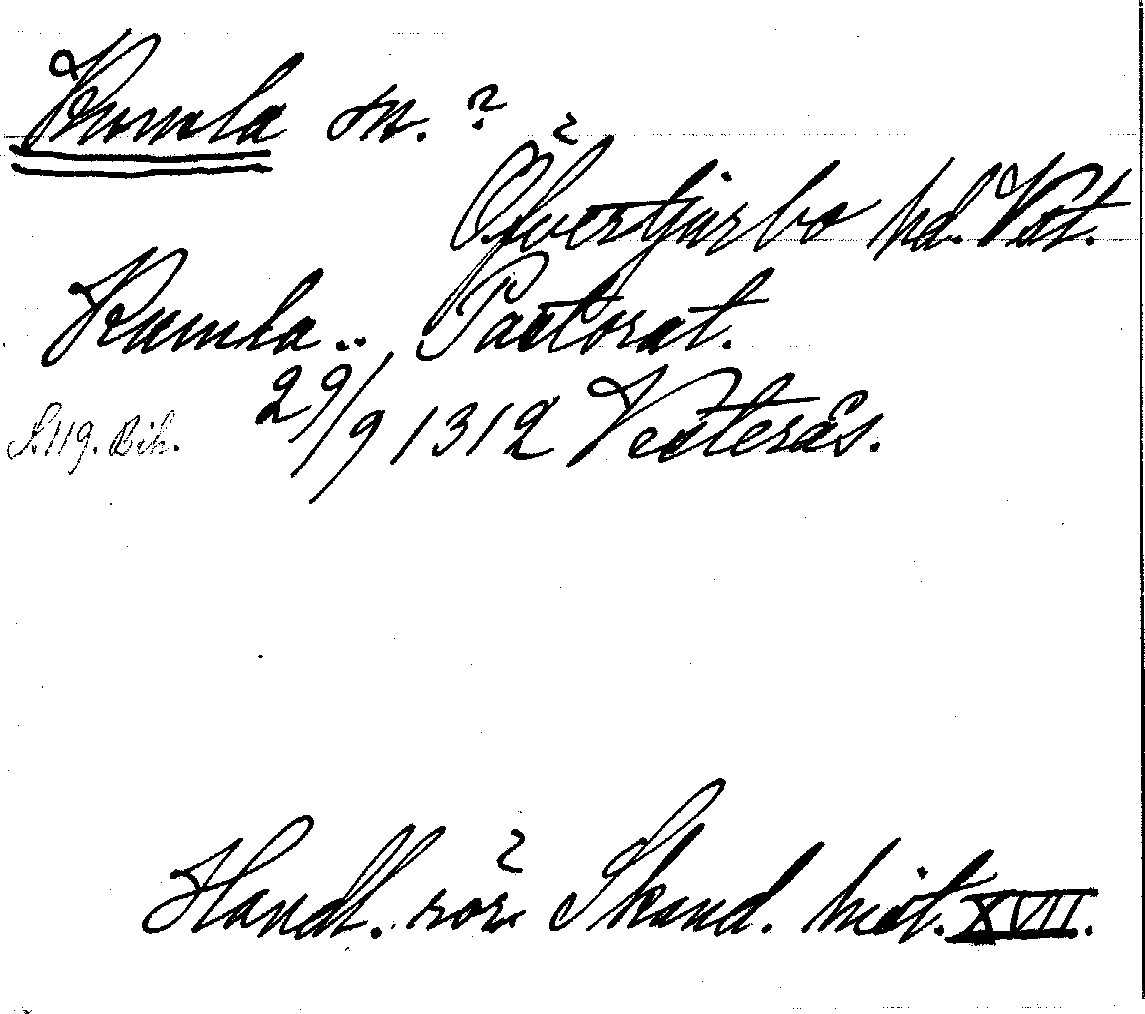 Kumla sn. ?
Öfvertjurbo hd. Vst.
Kumla .. Pastorat.
S. 119. Bih. 29/9 1312 Vesterås.
Handl. rör. Skand. hist. XVII.